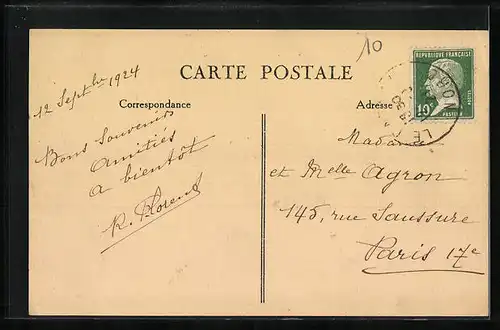 10
CARTE POSTALE
Correspondance
Adresse
REPUBLIQUE FRANÇAISE
10
POSTES
12 Septbre 1924
Bons Souvenirs
Amitiés
a bientôt
Madame
et Melle Agron
145, rue Saussure
Paris 17e